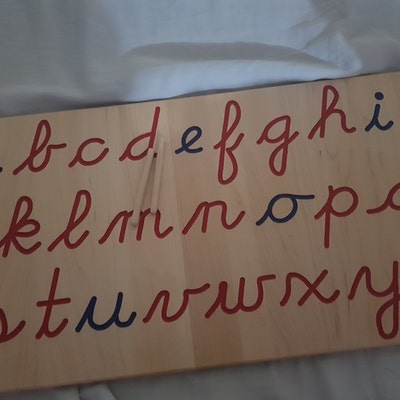 b c d e f g h i
k l m n o p
s t u v w x y